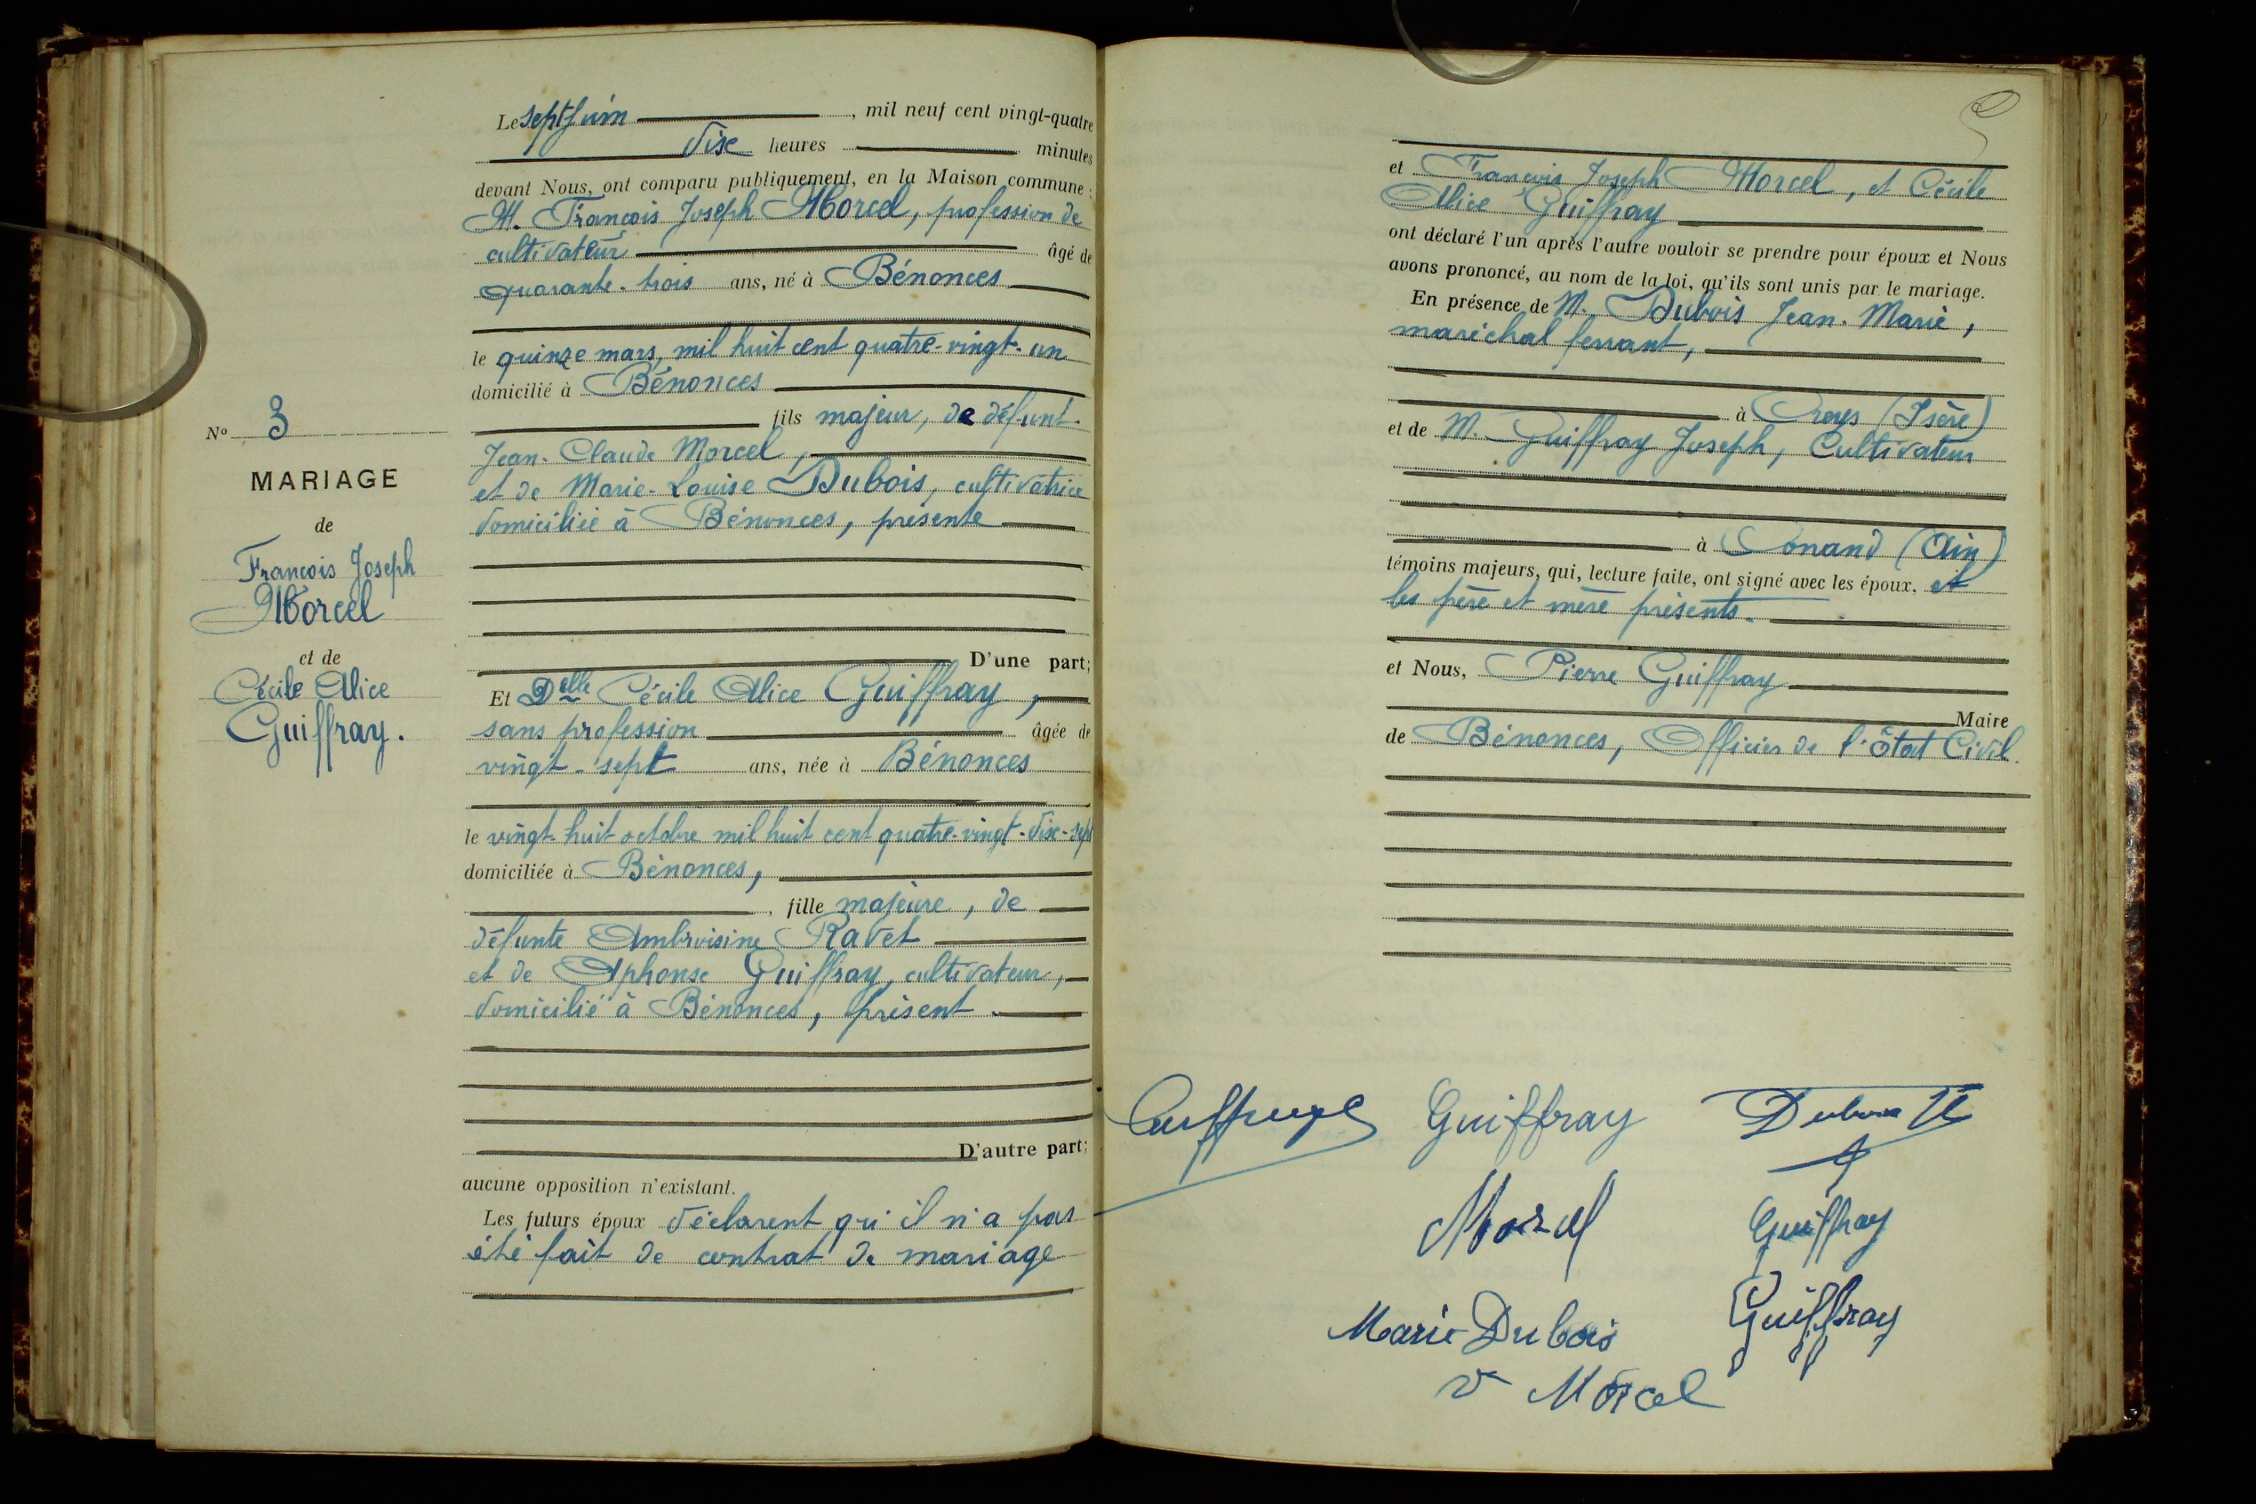 Nº 3
MARIAGE
de
François Joseph
Morcel
et de
Cécile Alice
Guiffray.
Le sept Juin, mil neuf cent vingt-quatre
dix heures minutes
devant Nous, ont comparu publiquement, en la Maison commune :
M. François Joseph Morcel, profession de
cultivateur âgé de
quarante-trois ans, né à Bénonces
le quinze mars, mil huit cent quatre-vingt-un
domicilié à Bénonces
fils majeur, de défunt
Jean-Claude Morcel,
et de Marie-Louise Dubois, cultivatrice
domiciliée à Bénonces, présente
D'une part;
Et Delle Cécile Alice Guiffray,
sans profession âgée de
vingt-sept ans, née à Bénonces
le vingt-huit octobre mil huit cent quatre-vingt-dix-sept
domiciliée à Bénonces,
, fille majeure, de
défunte Ambroisine Ravet
et de Alphonse Guiffray, cultivateur,
domicilié à Bénonces, présent.
D'autre part;
aucune opposition n'existant.
Les futurs époux déclarent qu'il n'a pas
été fait de contrat de mariage
et François Joseph Morcel, et Cécile
Alice Guiffray
ont déclaré l'un après l'autre vouloir se prendre pour époux et Nous
avons prononcé, au nom de la loi, qu'ils sont unis par le mariage.
En présence de M. Dubois Jean-Marie,
maréchal ferrant,
à Creys (Isère)
et de M. Guiffray Joseph, Cultivateur
à Conand (Ain)
témoins majeurs, qui, lecture faite, ont signé avec les époux. et
les père et mère présents.
et Nous, Pierre Guiffray
Maire
de Bénonces, Officier de l'État Civil.
Guiffray Dubois
Morcel Guiffray
Marie Dubois Guiffray
v Morcel